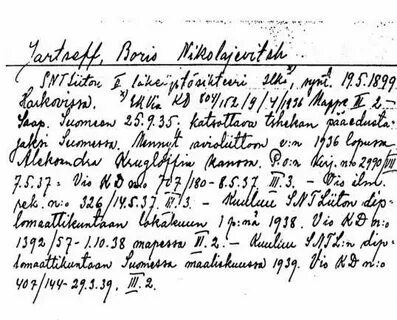 Jartseff, Boris Nikolajevitsh.
SNTliiton II lähetystösihteeri synt. 19.5.1899
Harkovissa. x) EK:Via KD 604/152/9/4/1936 Mappe II 2.-
Saap. Suomeen 25.9.35. katsottava tshekan pääedusta-
jaksi Suomessa. Mennyt avioliittoon v:n 1936 lopussa
Aleksandra Krugloffin kanssa. P.o:n kirj. n:o 2990/III
7.5.37 = Vis KD n:o 707/180-8.5.37 III.3. - Vis ilm.
rek. n:o 326/14.5.37. II.3. - Kuuluu SNTLiiton dip-
lomaattikuntaan lokakuun 1 p:nä 1938. Vis KD n:o
1392/57-1.10.38 mapessa II.2. - Kuuluu SNTL:n dip-
lomaattikuntaan Suomessa maaliskuussa 1939. Vis KD n:o
407/144-29.3.39. III.2.